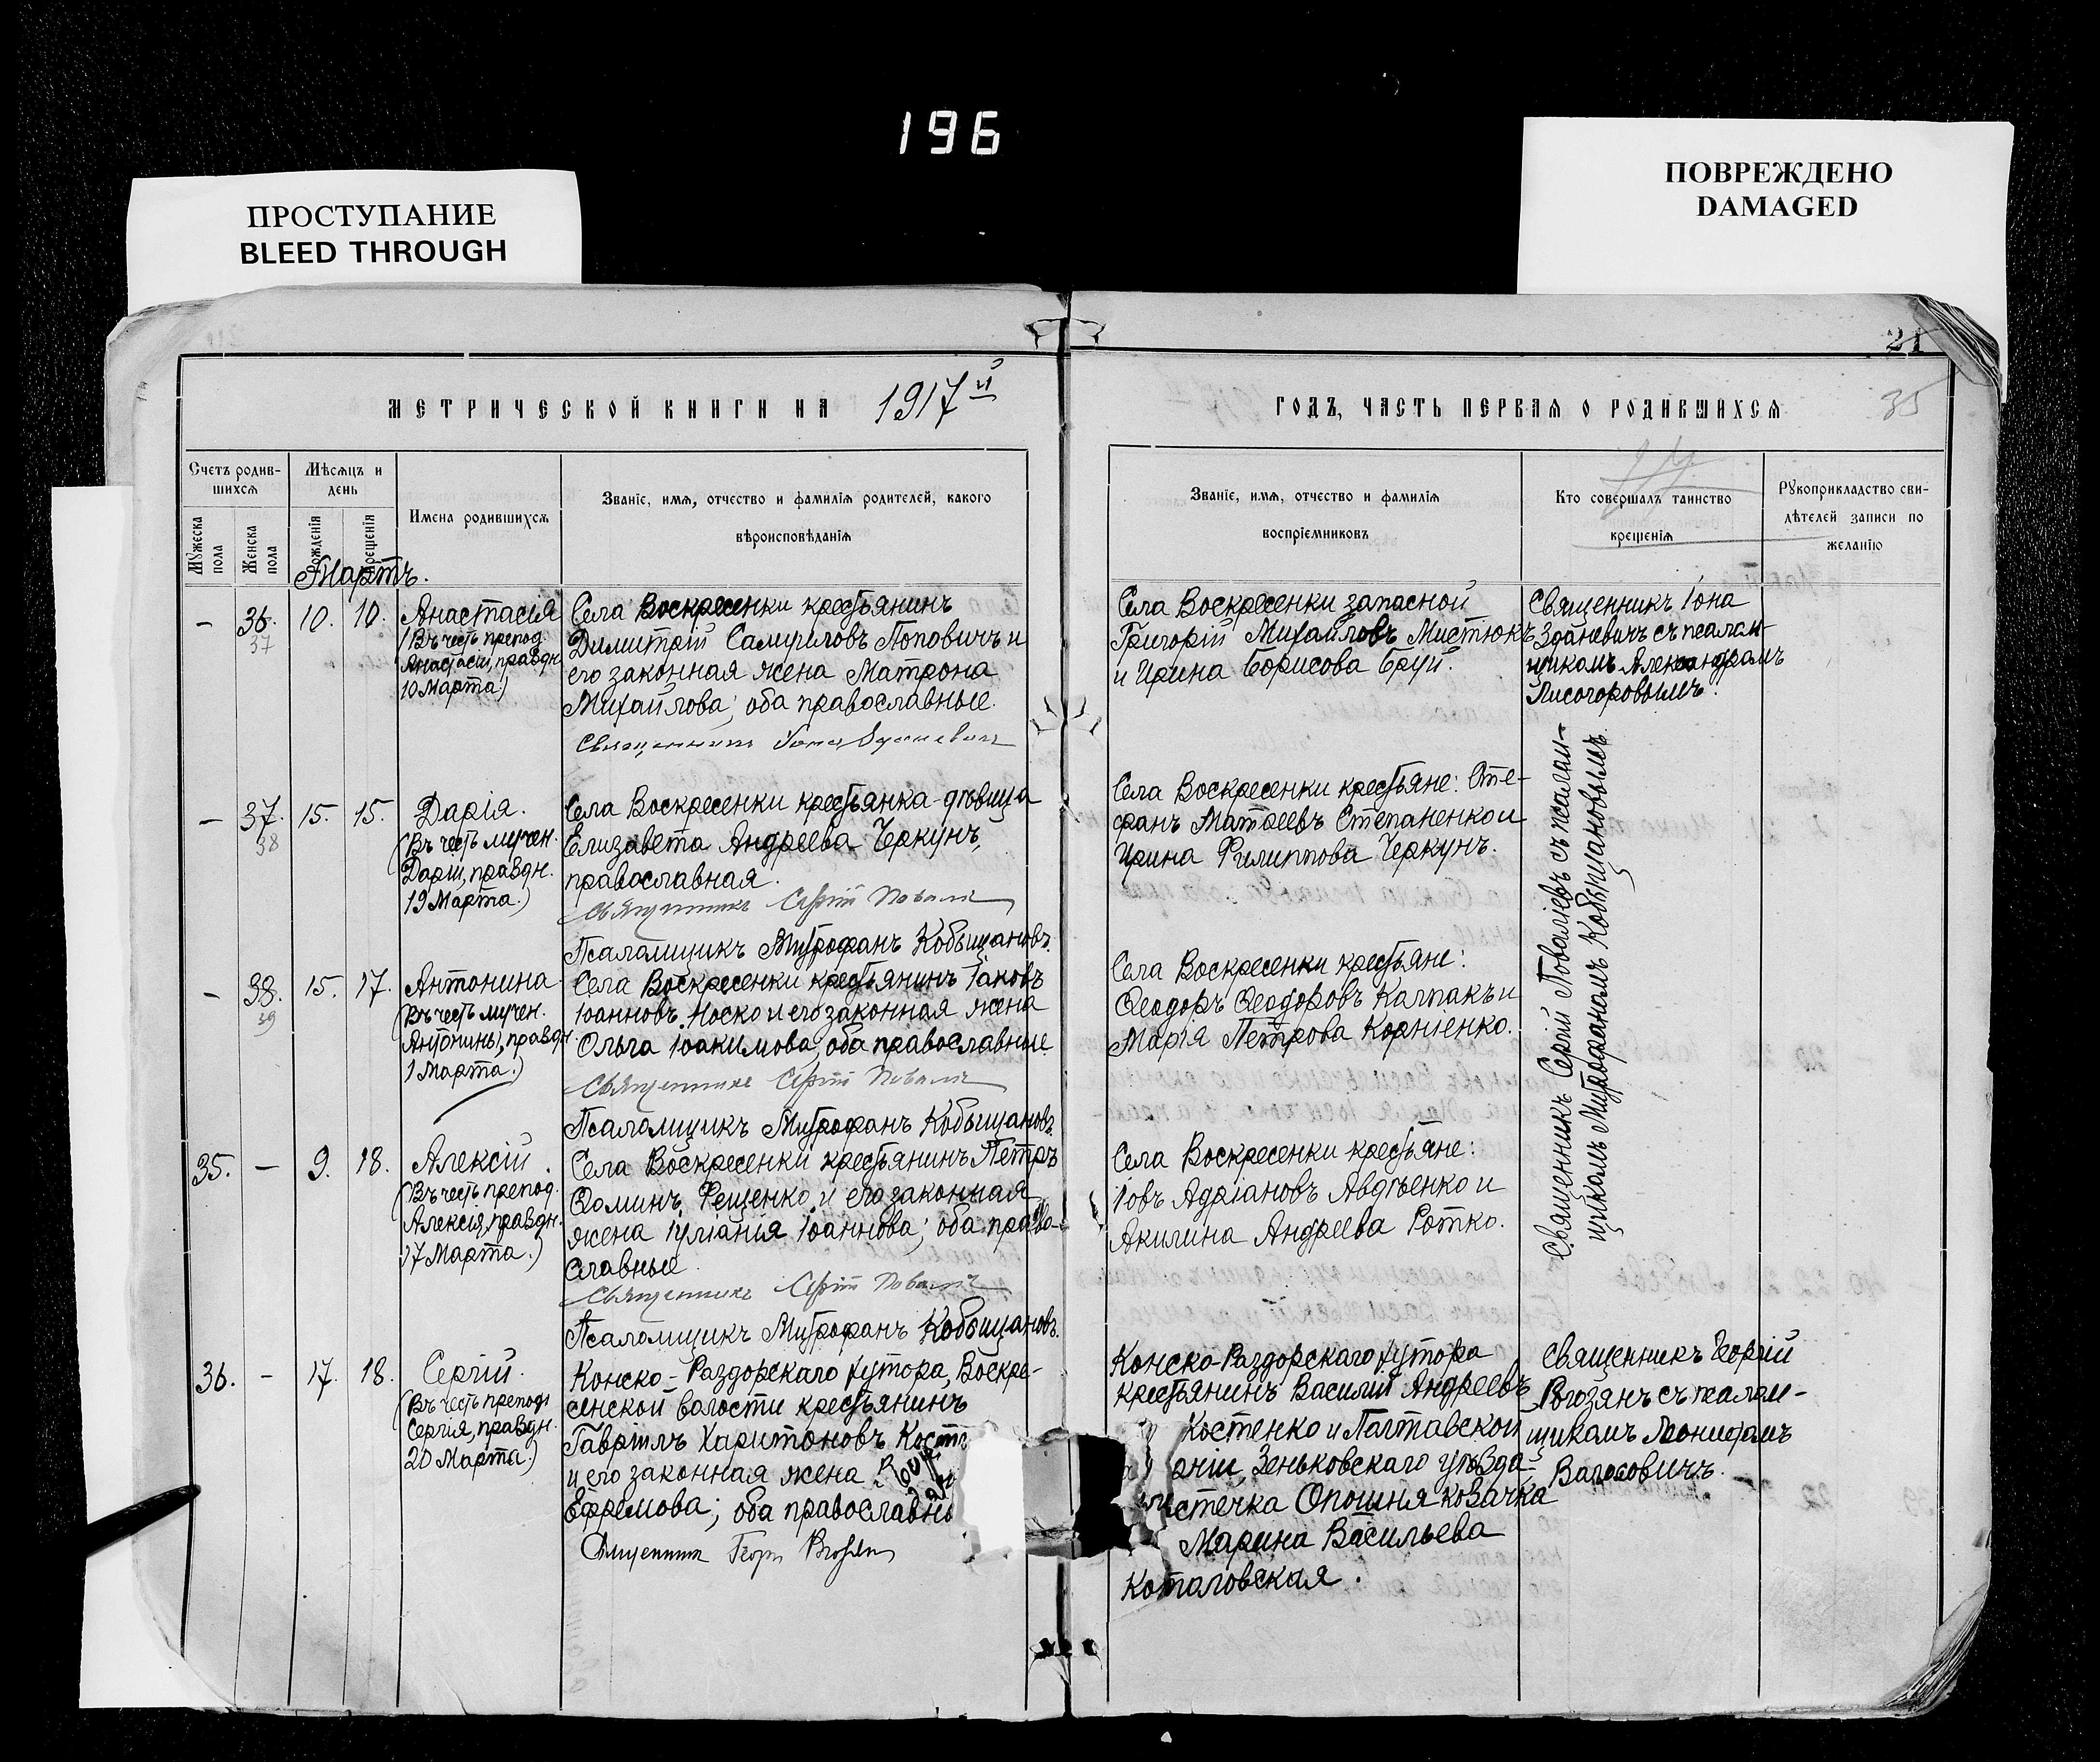 196
ПРОСТУПАНИЕ
BLEED THROUGH
ПОВРЕЖДЕНО
DAMAGED
21
35
МЕТРИЧЕСКОЙ КНИГИ НА 1917й
ГОДЪ, ЧАСТЬ ПЕРВАЯ О РОДИВШИХСЯ
Счетъ родив-
шихся
Мѣсяцъ и
день
Мужеска
пола
Женска
пола
Рожденія
Крещенія
Имена родившихся
Званіе, имя, отчество и фамилія родителей, какого
вѣроисповѣданія
Званіе, имя, отчество и фамилія
воспріемниковъ
Кто совершалъ таинство
крещенія
Рукоприкладство сви-
дѣтелей записи по
желанію
Мартъ.
– 36. 10. 10.
37
Анастасія
(Въ честь препод.
Анастасіи, праздн.
10 Марта)
Села Воскресенки крестьянинъ
Димитрій Самуиловъ Поповичъ и
его законная жена Матрона
Михайлова; оба православные.
Священникъ Іона Зданевичъ
Села Воскресенки запасной
Григорій Михайловъ Мистюкъ
и Ирина Борисова Бруй.
Священникъ Іона
Зданевичъ съ псалом-
щикомъ Александромъ
Лисогоровымъ.
– 37. 15. 15.
38
Дарія.
(Въ честь мучен.
Даріи, праздн.
19 Марта.)
Села Воскресенки крестьянка-дѣвица
Елизавета Андреева Черкунъ,
православная.
Священникъ Сергій
Псаломщикъ Митрофанъ Кобыщановъ.
Села Воскресенки крестьяне: Сте-
фанъ Матѳеевъ Степаненко и
Ирина Филиппова Черкунъ.
Священникъ Сергій Поваліевъ съ псалом-
щикомъ Митрофаномъ Кобыщановымъ.
– 38. 15. 17.
39
Антонина
(Въ честь мучен.
Антонины, праздн.
1 Марта.)
Села Воскресенки крестьянинъ Іаковъ
Іоанновъ Носко и его законная жена
Ольга Іоакимова; оба православные
Священникъ Сергій
Псаломщикъ Митрофанъ Кобыщановъ.
Села Воскресенки крестьяне:
Ѳеодоръ Ѳеодоровъ Калпакъ и
Марія Петрова Корніенко.
35. – 9. 18.
Алексій.
(Въ честь препод.
Алексія, праздн.
17 Марта.)
Села Воскресенки крестьянинъ Петръ
Ѳоминъ Рещенко и его законная
жена Іуліанія Іоаннова; оба право-
славные.
Священникъ Сергій
Псаломщикъ Митрофанъ Кобыщановъ.
Села Воскресенки крестьяне:
Іовъ Адріановъ Авдѣенко и
Акилина Андреева Ротко.
36. – 17. 18.
Сергій.
(Въ честь препод.
Сергія, праздн.
20 Марта.)
Конско-Раздорскаго хутора, Воскре-
сенской волости крестьянинъ
Гавріилъ Харитоновъ Кост
и его законная жена
Ефремова; оба православны
Священникъ Георг
Конско-Раздорскаго хутора
крестьянинъ Василій Андреевъ
Костенко и Полтавской
рніи, Зеньковскаго уѣзда,
мѣстечка Опошня козачка
Марина Васильева
Котловская.
Священникъ Георгій
Рогозянъ съ псалом-
щикомъ Леонидомъ